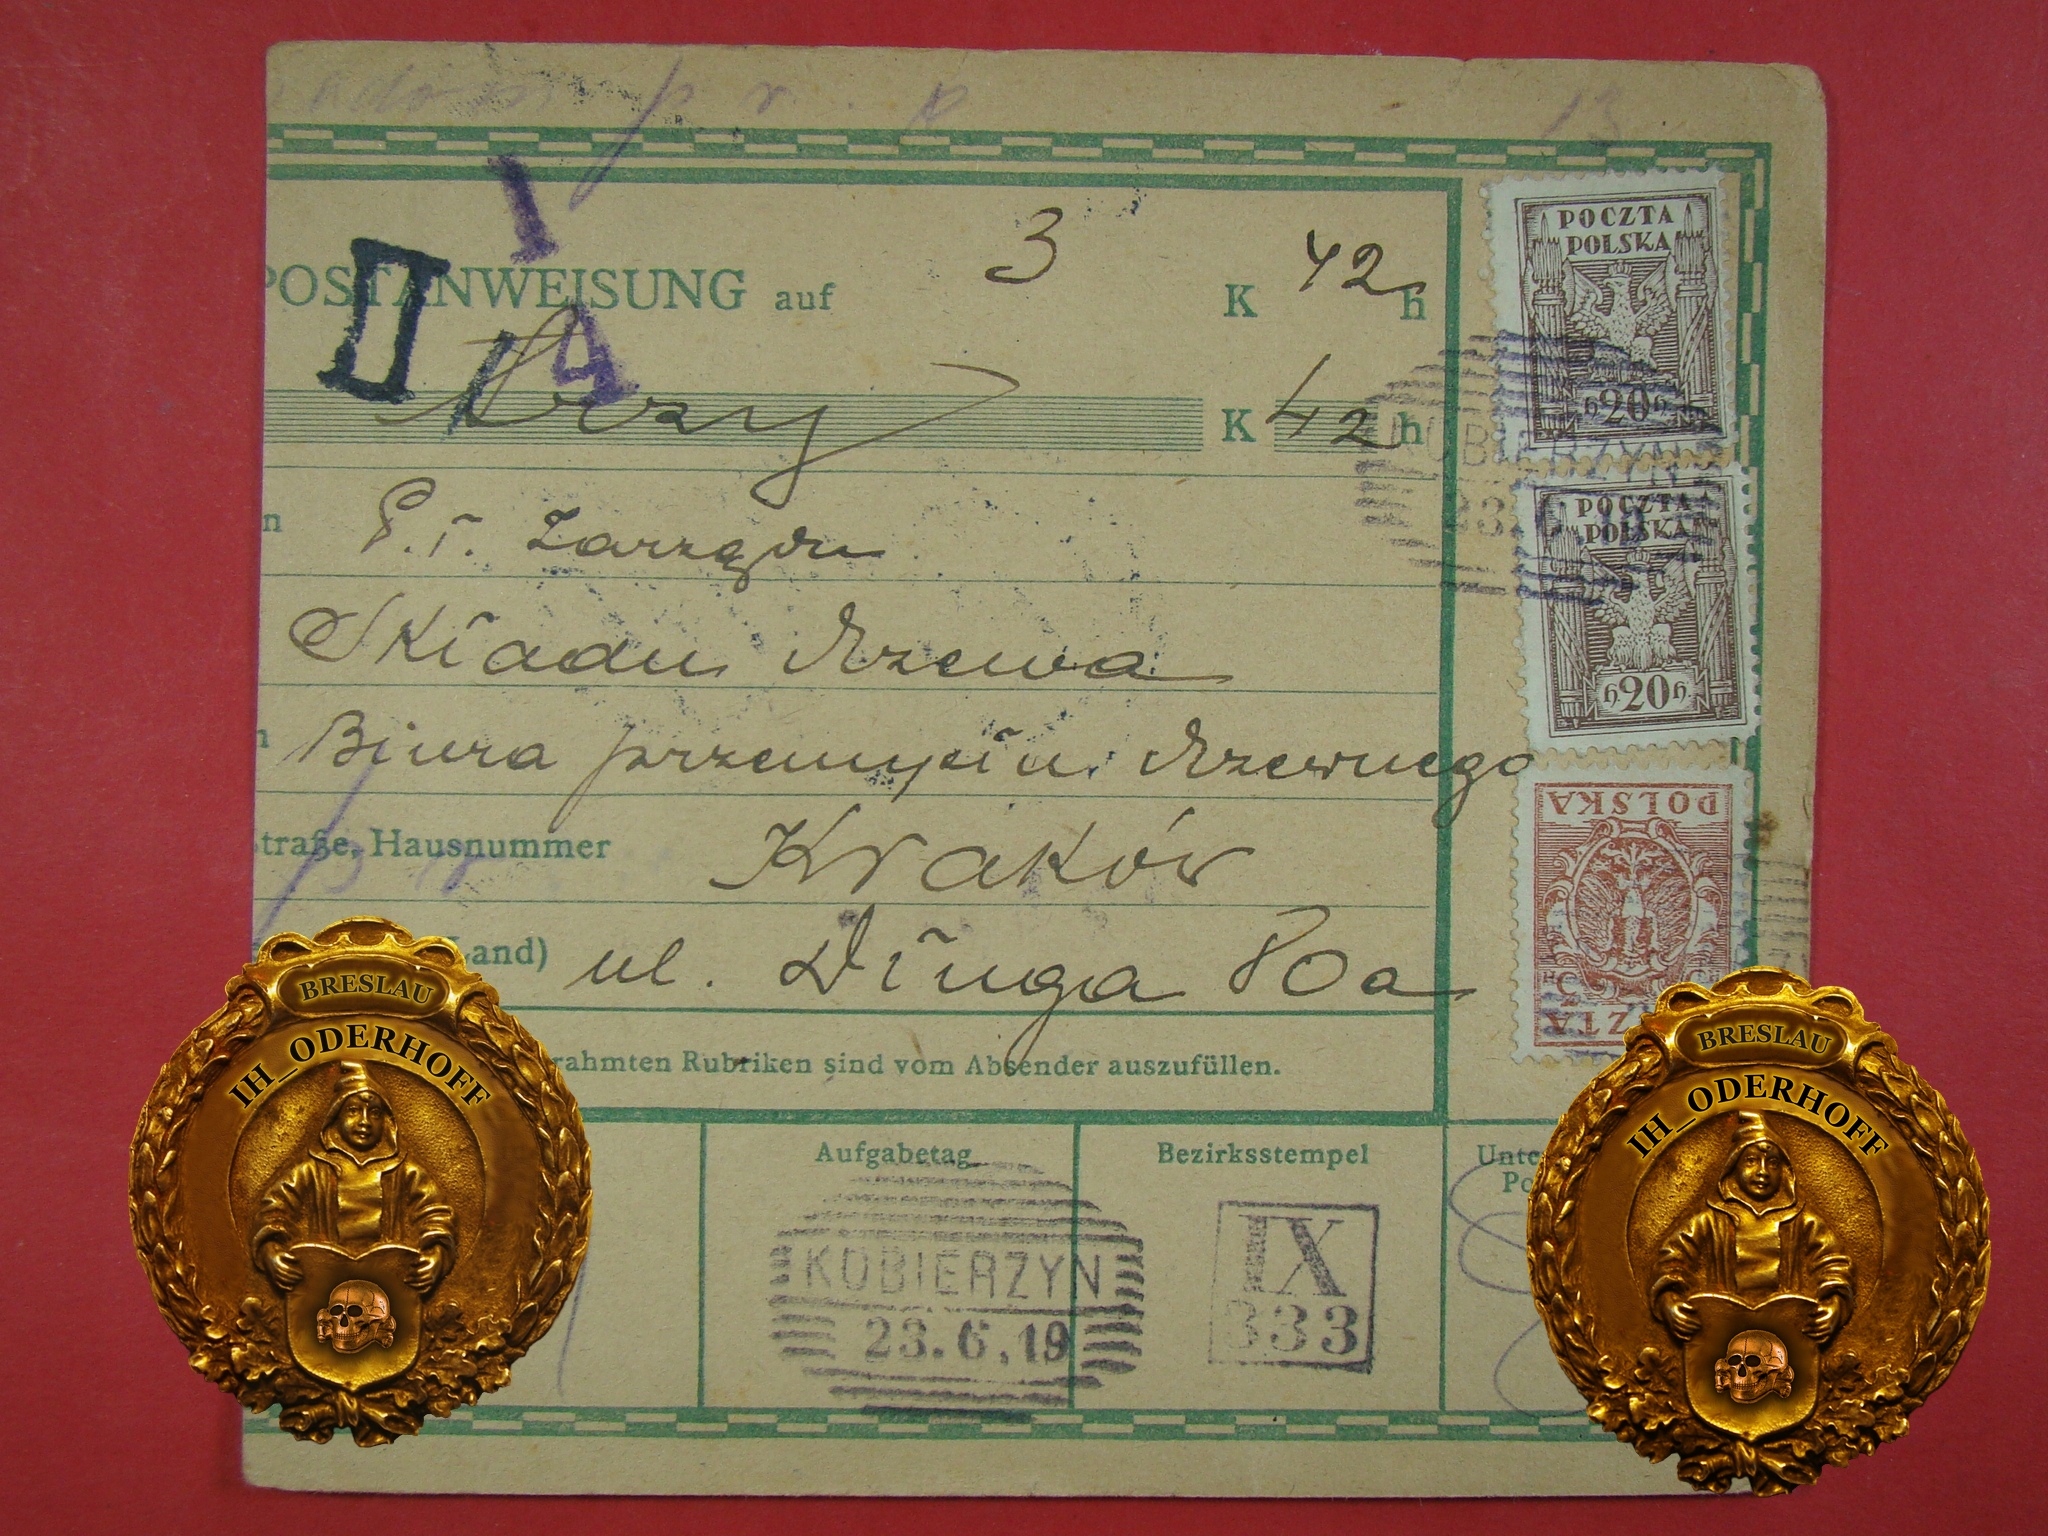 13
I
POSTANWEISUNG auf 3 K 42 h
II
4
trzy K 42 h
Składu drzewa
Biura przemysłu drzewnego
Straße, Hausnummer Kraków
Land) ul. Długa 80a
rahmten Rubriken sind vom Absender auszufüllen.
Aufgabetag
Bezirksstempel
KOBIERZYN
23.6.19
IX
333
POCZTA
POLSKA
h 20 h
KOBIERZYN
POCZTA
POLSKA
h 20 h
POLSKA
BRESLAU
IH_ODERHOFF
BRESLAU
IH_ODERHOFF